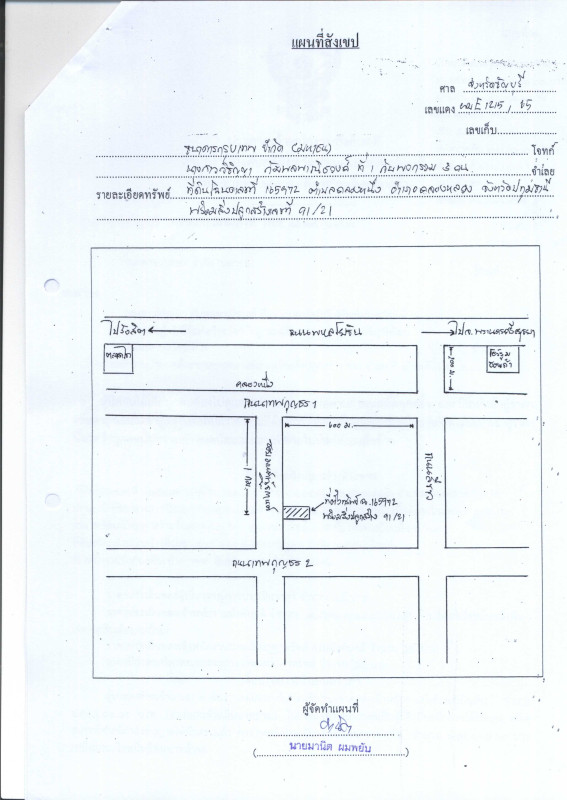 แผนที่สังเขป
ศาล จังหวัดธัญบุรี
เลขแดง ผบE 1215, 65
เลขเก็บ
ธนาคารกรุงเทพ จำกัด (มหาชน) โจทก์
ที่ 1 กับพวกรวม 3 คน จำเลย
รายละเอียดทรัพย์ ที่ดินโฉนดเลขที่ 165972 ตำบลคลองหนึ่ง อำเภอคลองหลวง จังหวัดปทุมธานี
พร้อมสิ่งปลูกสร้างเลขที่ 91/21
ไปรังสิต
ถนนพหลโยธิน
ไป จ.พระนครศรีอยุธยา
คลองหนึ่ง
ถนนเทพกุญชร 1
600 ม.
1 กม.
ที่ตั้งทรัพย์ ฉ.165972
พร้อมสิ่งปลูกสร้าง 91/21
ถนนเทพกุญชร 2
ผู้จัดทำแผนที่
(นายมานิต ผมพยับ)